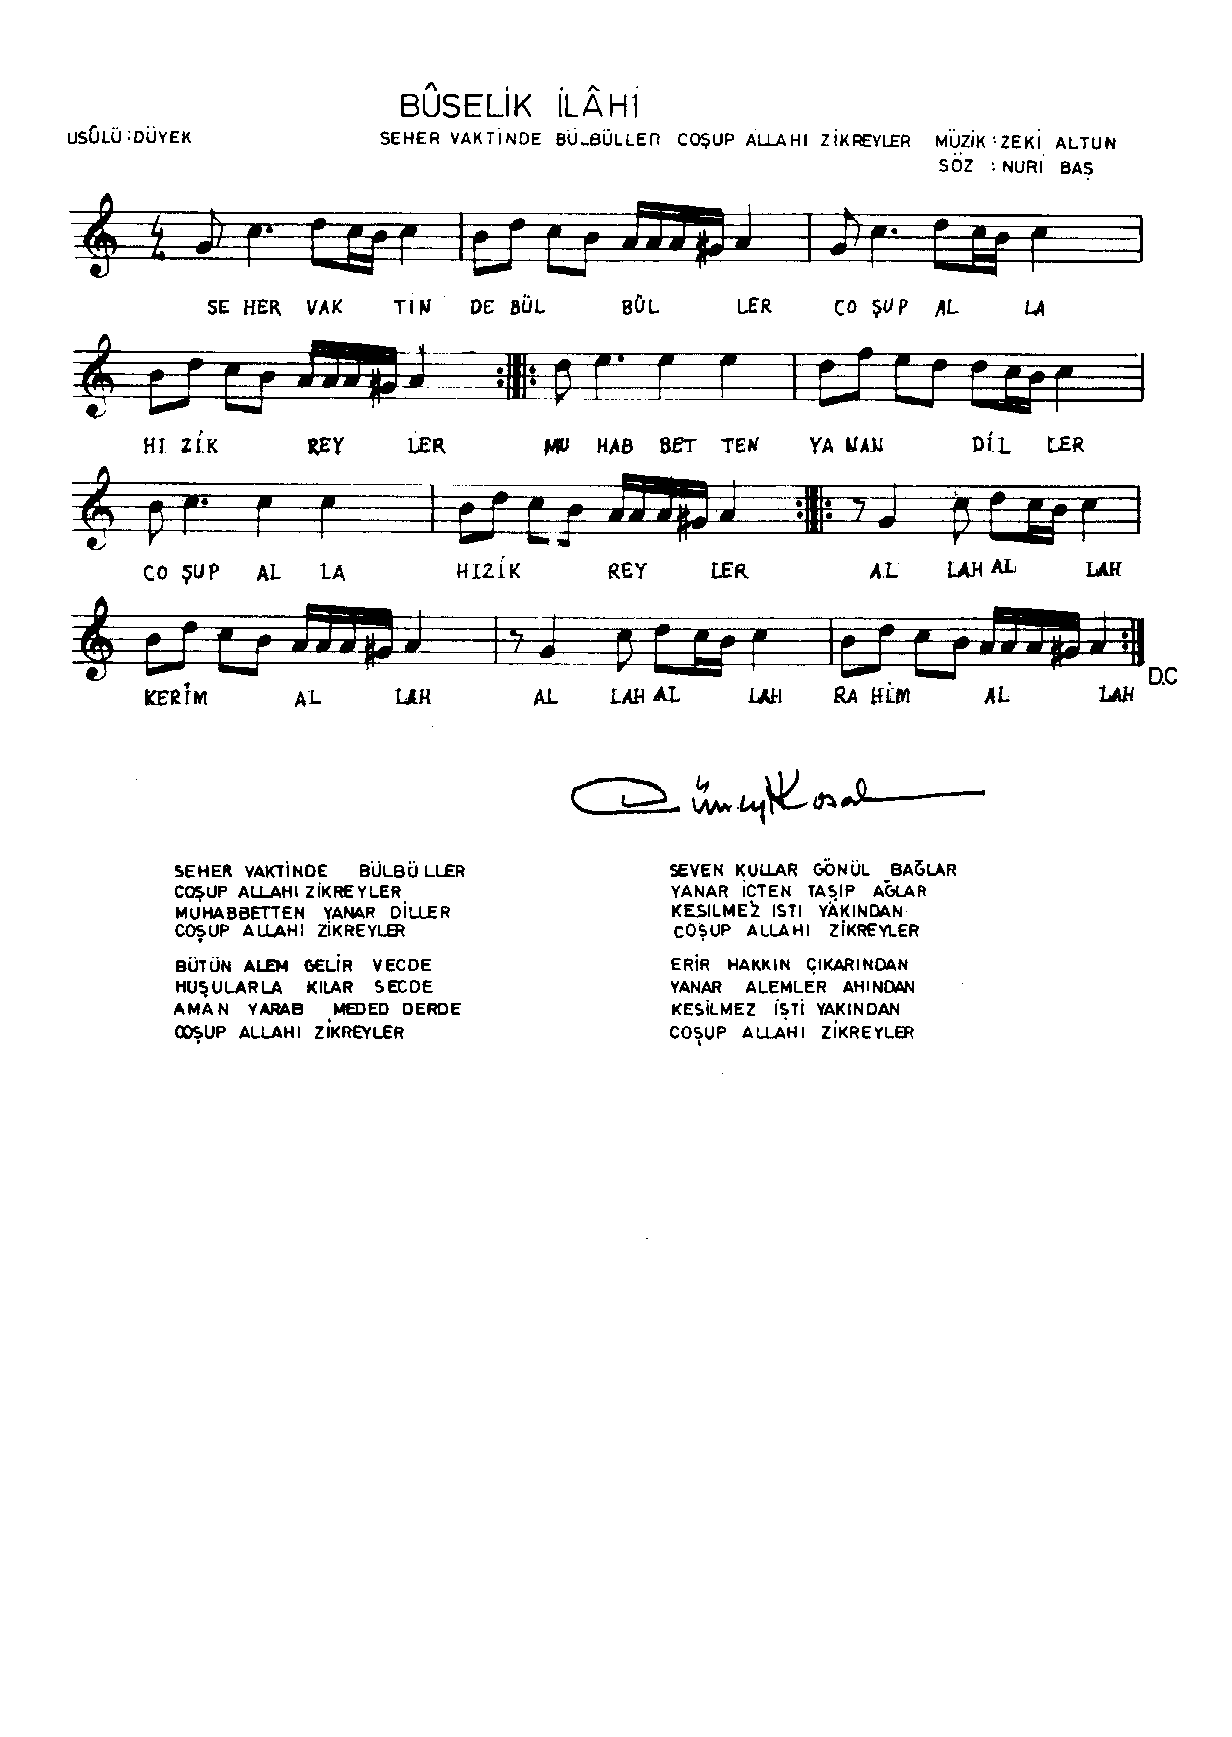 BÛSELİK İLÂHİ
USÛLÜ : DÜYEK SEHER VAKTİNDE BÜLBÜLLER COŞUP ALLAHI ZİKREYLER MÜZİK : ZEKİ ALTUN
SÖZ : NURİ BAŞ
SE HER VAK TİN DE BÜL BÜL LER CO ŞUP AL LA
HI ZİK REY LER MU HAB BET TEN YA NAN DİL LER
CO ŞUP AL LA HIZİK REY LER AL LAH AL LAH
KERİM AL LAH AL LAH AL LAH RA HİM AL LAH
D.C
SEHER VAKTİNDE BÜLBÜLLER
COŞUP ALLAHI ZİKREYLER
MUHABBETTEN YANAR DİLLER
COŞUP ALLAHI ZİKREYLER
BÜTÜN ALEM GELİR VECDE
HUŞULARLA KILAR SECDE
AMAN YARAB MEDED DERDE
COŞUP ALLAHI ZİKREYLER
SEVEN KULLAR GÖNÜL BAĞLAR
YANAR İCTEN TAŞIP AĞLAR
KESILMEZ ISTI YAKINDAN
COŞUP ALLAHI ZİKREYLER
ERİR HAKKIN ÇIKARINDAN
YANAR ALEMLER AHINDAN
KESİLMEZ İŞTİ YAKINDAN
COŞUP ALLAHI ZİKREYLER